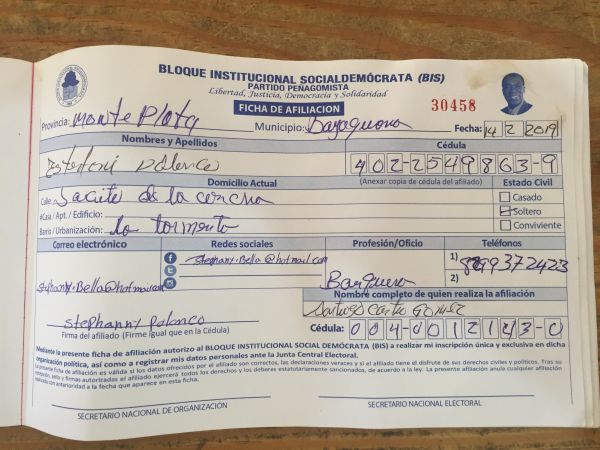 BLOQUE INSTITUCIONAL SOCIALDEMÓCRATA (BIS)
PARTIDO PEÑAGOMISTA
Libertad, Justicia, Democracia y Solidaridad
FICHA DE AFILIACION
30458
Provincia: Monte Plata Municipio: Bayaguana Fecha: 14 2 2019
Nombres y Apellidos Cédula
Polanco 402-2549863-9
Domicilio Actual (Anexar copia de cédula del afiliado) Estado Civil
Calle: de la concha
Casado
#Casa / Apt. / Edificio:
Soltero
Barrio / Urbanización: la tormenta
Conviviente
Correo electrónico Redes sociales Profesión/Oficio Teléfonos
stephany.Bella@hotmail.com 1) 8299372423
2)
stephany.Bella@hotmail.com
Nombre completo de quien realiza la afiliación
Santiago Castro Gomez
stephanny Polanco
Firma del afiliado (Firme igual que en la Cédula)
Cédula: 004-0012143-0
Mediante la presente ficha de afiliación autorizo al BLOQUE INSTITUCIONAL SOCIAL DEMÓCRATA (BIS) a realizar mi inscripción única y exclusiva en dicha
organización política, así como a registrar mis datos personales ante la Junta Central Electoral.
La presente ficha de afiliación es válida si los datos ofrecidos por el afiliado son correctos, las declaraciones veraces y si el afiliado tiene el disfrute de sus derechos civiles y políticos. Tras su
excepción, sello y firmas autorizadas el afiliado ejercerá todos los derechos y los deberes estatutariamente sancionados, de acuerdo a la ley. La presente afiliación anula cualquier afiliación
realizada con anterioridad a la fecha que aparece en esta ficha.
SECRETARIO NACIONAL DE ORGANIZACIÓN SECRETARIO NACIONAL ELECTORAL